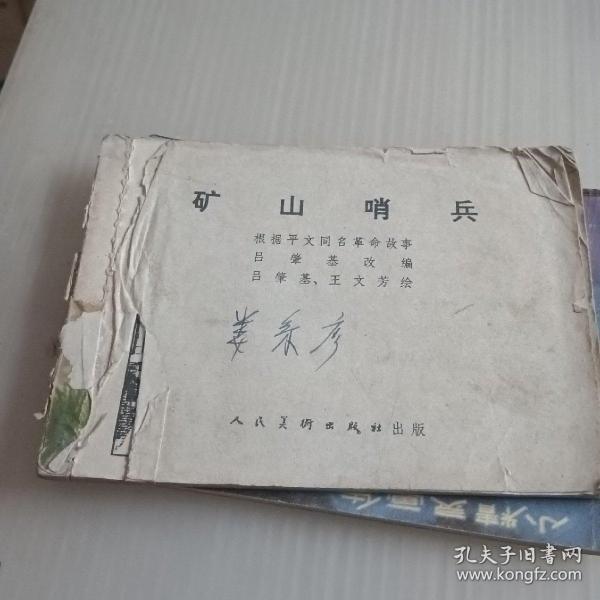 矿山哨兵
根据平文同名革命故事
吕肇基改编
吕肇基、王文芳绘
姜
人民美術出版社出版
小精灵画传
孔夫子旧书网
www.kongfz.com